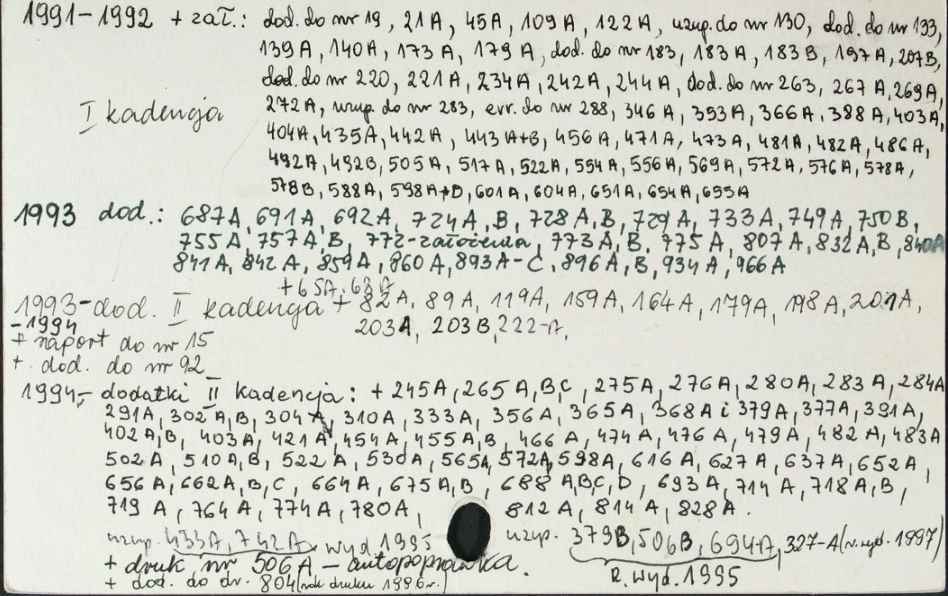 1991-1992 + zał.: dod. do nr 19, 21A, 45A, 109A, 122A, uzup. do nr 130, dod. do nr 133,
139A, 140A, 173A, 179A, dod. do nr 183, 183A, 183B, 197A, 207B,
dod. do nr 220, 221A, 234A, 242A, 244A, dod. do nr 263, 267A, 269A,
I kadencja 272A, uzup. do nr 283, err. do nr 288, 346A, 353A, 366A, 388A, 403A,
404A, 435A, 442A, 443A+B, 456A, 471A, 473A, 481A, 482A, 486A,
492A, 492B, 505A, 517A, 522A, 554A, 556A, 569A, 572A, 576A, 578A,
578B, 588A, 598A+D, 601A, 604A, 651A, 654A, 655A
1993 dod.: 687A, 691A, 692A, 724A,B, 728A,B, 729A, 733A, 749A, 750B,
755A, 757A,B, 772-założenia, 773A,B, 775A, 807A, 832A,B, 840A
841A, 842A, 859A, 860A, 893A-C, 896A,B, 934A, 966A
+65A, 68A
1993-dod. II kadencja + 82A, 89A, 119A, 159A, 164A, 179A, 198A, 201A,
-1994 203A, 203B, 222-A,
+ raport do nr 15
+ dod. do nr 92
1994,- dodatki II kadencja: + 245A, 265A,BC, 275A, 276A, 280A, 283A, 284A
291A, 302A,B, 304A, 310A, 333A, 356A, 365A, 368A i 379A, 377A, 391A,
402A,B, 403A, 421A, 454A, 455A,B, 466A, 474A, 476A, 479A, 482A, 483A
502A, 510A,B, 522A, 530A, 565A, 572A, 598A, 616A, 627A, 637A, 652A,
656A, 662A,B,C, 664A, 675A,B, 688 ABC,D, 693A, 714A, 718A,B,
719A, 764A, 774A, 780A, 812A, 814A, 828A.
uzup. 433A, 742A wyd 1995 uzup. 379B, 506B, 694A, 327-A (r. wyd. 1997)
+ druk nr 506A - autopoprawka. R. wyd. 1995
+ dod. do dr. 804 (rok druku 1996 r.)